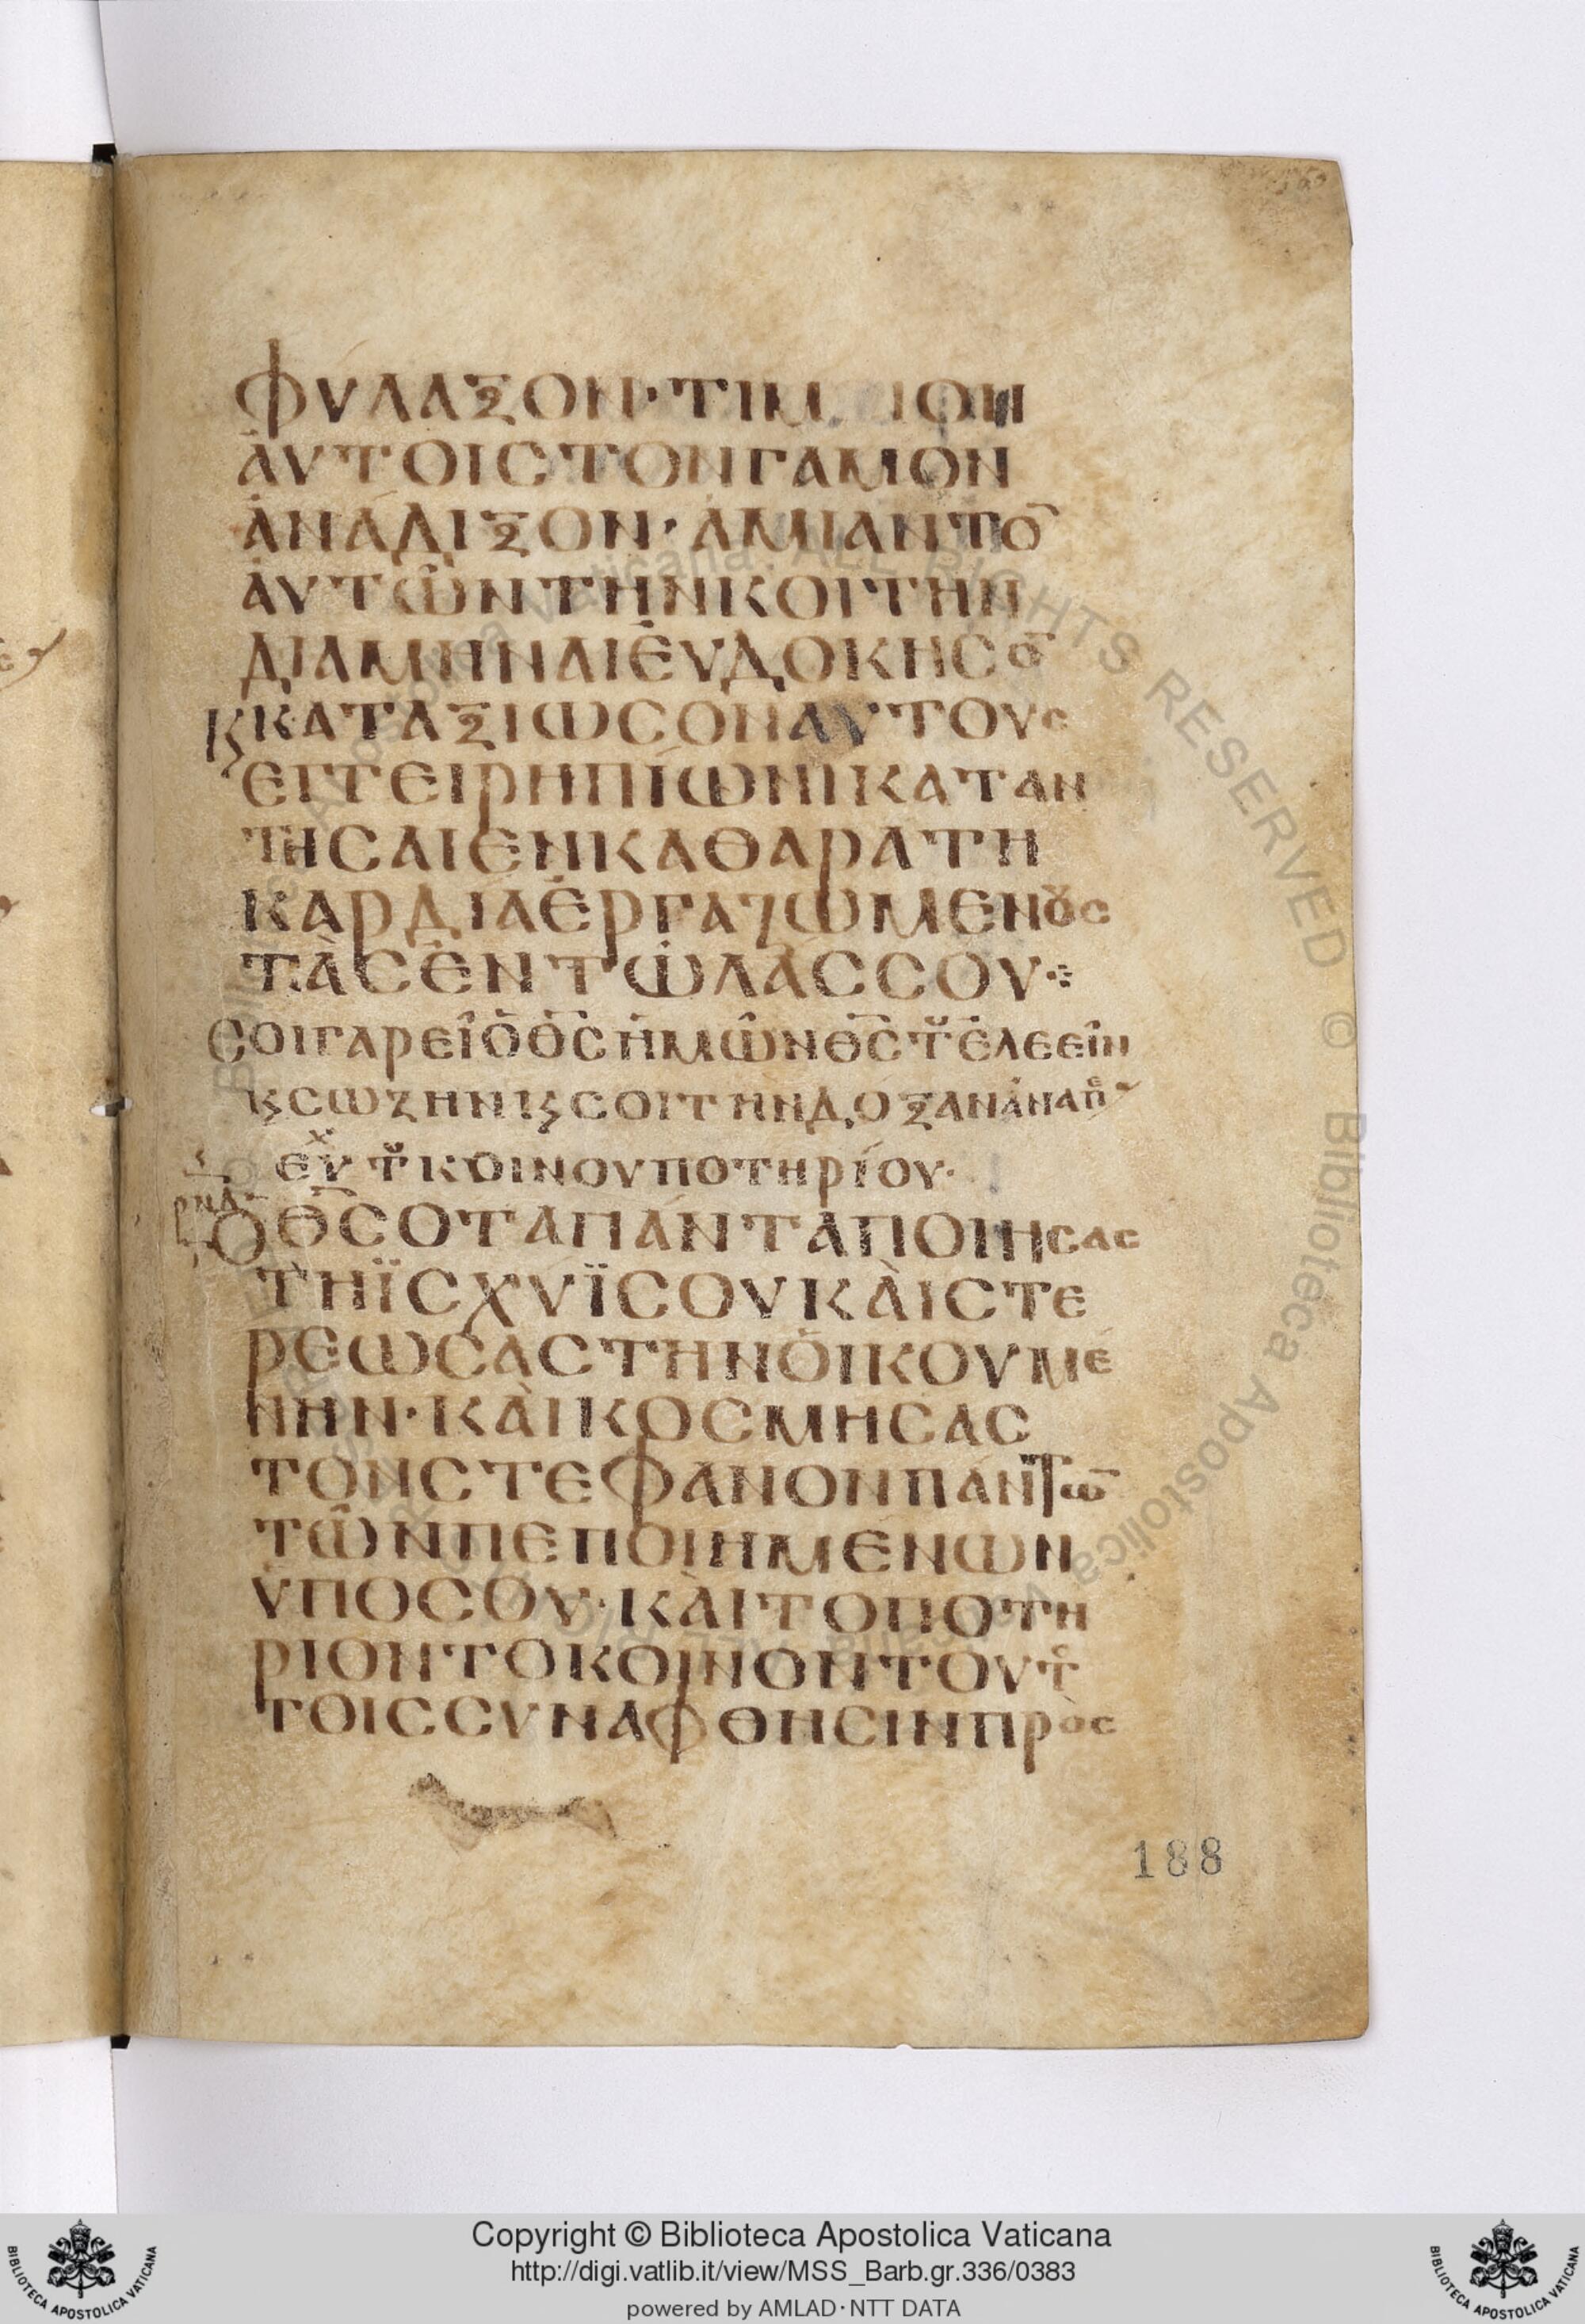 ΦΥΛΑΞΟΝ· ΤΙΜ ΙΟΝ
ΑΥΤΟΙC ΤΟΝ ΓΑΜΟΝ
ΑΝΑΔΙΞΟΝ· ΑΜΙΑΝΤΟ̅
ΑΥΤΩ͂Ν ΤΗΝ ΚΟΙΤΗΝ
ΔΙΑΜΗΝΑΙ ΕΥΔΟΚΗCΟ̅
Ϗ ΚΑΤΑΞΙΩCΟΝ ΑΥΤΟΥC
ΕΓ ΓΕΙΡΗ ΠΙΩΝΙ ΚΑΤΑΝ
ΤΗCΑΙ ΕΝ ΚΑΘΑΡΑ ΤΗ
ΚΑΡΔΙΑ ΕΡΓΑΖΩΜΕΝȣC
ΤᾺC ΕΝΤΩΛΑC CΟΥ ⁘
CΟΙ ΓΑΡ ΕΙ̂ Ὁ Θ̅C̅ ΗΜΩ͂Ν Θ̅C̅ Τȣ ΕΛΕΕΙΝ
Ϗ CΩΖΗΝ Ϗ CΟΙ ΤΗΝ ΔΟΞΑΝ ΑΝΑΠ
ΕΥ̇Χ Τȣ ΚΟΙΝΟΥ ΠΟΤΗΡΙΟΥ·
Ὁ Θ̅C̅ Ο ΤΑ ΠΑΝΤΑ ΠΟΙΗCΑC
ΤΗ ΪCΧΥΪ CΟΥ ΚᾺΙ CΤΕ
ΡΕΩCΑC ΤΗΝ ΟΙΚΟΥΜΕ
ΝΗΝ· ΚᾺΙ ΚΟCΜΗCΑC
ΤΟΝ CΤΕΦΑΝΟΝ ΠΑΝΤΩ̅
ΤΩ͂Ν ΠΕΠΟΙΗΜΕΝΩΝ
ΥΠΟ CΟΥ· ΚᾺΙ ΤΟ ΠΟΤΗ
ΡΙΟΝ ΤΟ ΚΟΙΝΟΝ ΤΟΥΤΟ
ΤΟΙC CΥΝΑΦΘΗCΙΝ ΠΡῸC
188
Copyright © Biblioteca Apostolica Vaticana
http://digi.vatlib.it/view/MSS_Barb.gr.336/0383
powered by AMLAD·NTT DATA
BIBLIOTECA APOSTOLICA VATICANA
BIBLIOTECA APOSTOLICA VATICANA